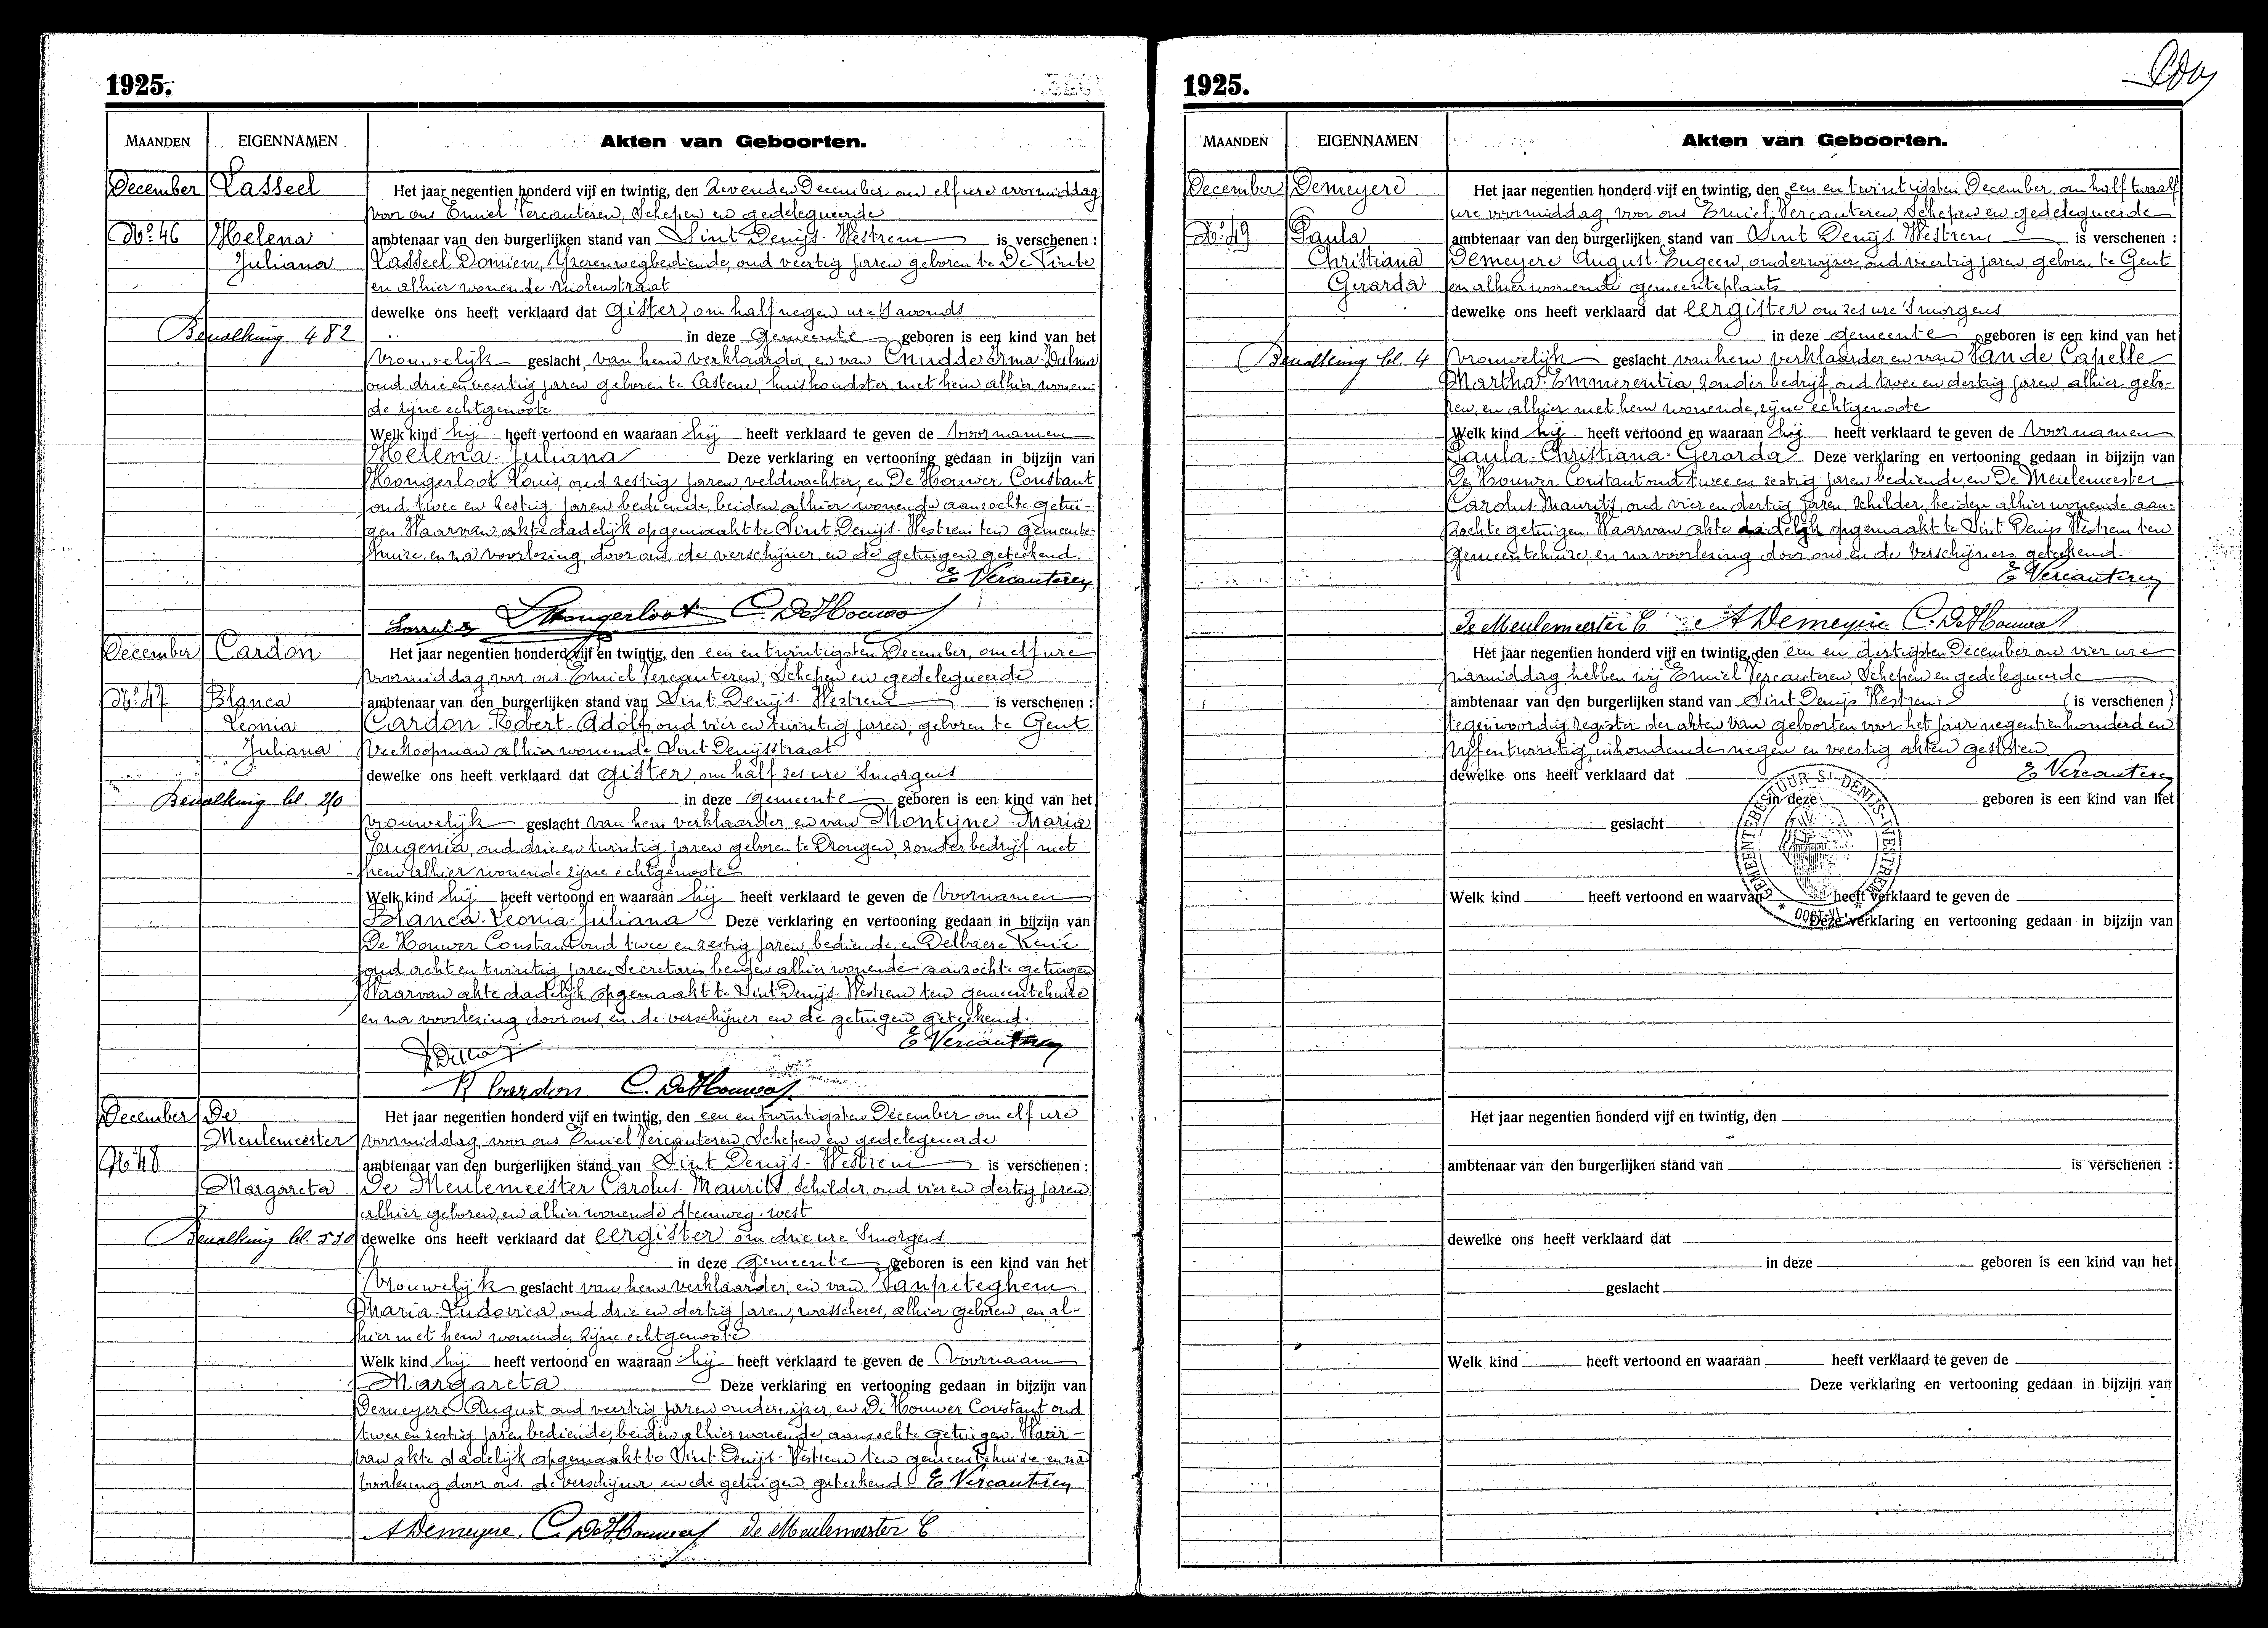 1925.
MAANDEN EIGENNAMEN Akten van Geboorten.
December Lasseel Het jaar negentien honderd vijf en twintig, den zevenden December om elf ure voormiddag
voor ons Emiel Vercauteren, Schepen en gedelegueerde
No 46 Helena ambtenaar van den burgerlijken stand van Sint Denijs-Westrem is verschenen :
Juliana Lasseel Domien, Yzerenwegbediende, oud veertig jaren geboren te De Pinte
en alhier wonende Molenstraat
dewelke ons heeft verklaard dat gister, om half negen ure 's avonds
Bevolking 482 in deze Gemeente geboren is een kind van het
Vrouwelijk geslacht, van hem verklaarder, en van Cnudde Irma-Zulma
oud drie en veertig jaren geboren te Astene, huishoudster, met hem alhier wonen-
de zijne echtgenoote
Welk kind hij heeft vertoond en waaraan hij heeft verklaard te geven de Voornamen
Helena-Juliana Deze verklaring en vertooning gedaan in bijzijn van
Hongerloot Louis, oud zestig jaren, veldwachter, en De Houwer Constant
oud twee en zestig jaren bediende, beiden alhier wonende aanzochte getui-
gen. Waarvan akte dadelijk opgemaakt te Sint Denijs-Westrem ten gemeente-
huize, en na voorlezing, door ons, de verschijner, en de getuigen geteekend.
E Vercauteren
Hongerloot C. De Houwer
December Cardon Het jaar negentien honderd vijf en twintig, den een en twintigsten December, om elf ure
voormiddag, voor ons Emiel Vercauteren, Schepen en gedelegueerde
No 47 Blanca ambtenaar van den burgerlijken stand van Sint Denijs-Westrem is verschenen :
Leonia Cardon Robert-Adolf, oud vier en twintig jaren, geboren te Gent
Juliana Veekoopman alhier wonende Sint-Denijsstraat
dewelke ons heeft verklaard dat gister, om half zes ure 's morgens
Bevolking bl. in deze Gemeente geboren is een kind van het
vrouwelijk geslacht van hem verklaarder, en van Montyne Maria
Eugenia, oud drie en twintig jaren geboren te Drongen, zonder bedrijf met
hem alhier wonende zijne echtgenoote
Welk kind hij heeft vertoond en waaraan hij heeft verklaard te geven de Voornamen
Blanca-Leonia-Juliana Deze verklaring en vertooning gedaan in bijzijn van
De Houwer Constant oud twee en zestig jaren, bediende, en Delbaere René
oud acht en twintig jaren Secretaris, beiden alhier wonende aanzochte getuigen
Waarvan akte dadelijk opgemaakt te Sint Denijs-Westrem ten gemeentehuize
en na voorlezing door ons, en de verschijner en de getuigen geteekend.
E Vercauteren
R Cardon C. De Houwer
December De Het jaar negentien honderd vijf en twintig, den een en twintigsten December om elf ure
Meulemeester voormiddag, voor ons Emiel Vercauteren, Schepen en gedelegueerde
No 48 ambtenaar van den burgerlijken stand van Sint Denijs-Westrem is verschenen :
Margareta De Meulemeester Carolus-Maurits, Schilder, oud vier en dertig jaren
alhier geboren, en alhier wonende Steenweg-west
Bevolking bl. 530 dewelke ons heeft verklaard dat eergister om drie ure 's morgens
in deze Gemeente geboren is een kind van het
Vrouwelijk geslacht van hem verklaarder, en van Vanpeteghem
Maria-Ludovica, oud drie en dertig jaren, wasscheres, alhier geboren, en al-
hier met hem wonende, zijne echtgenoote
Welk kind hij heeft vertoond en waaraan hij heeft verklaard te geven de Voornaam
Margareta Deze verklaring en vertooning gedaan in bijzijn van
Demeyere August oud veertig jaren onderwijzer, en De Houwer Constant oud
twee en zestig jaren bediende, beiden alhier wonende, aanzochte getuigen. Waar-
van akte dadelijk opgemaakt te Sint-Denijs-Westrem ten gemeentehuize en na
voorlezing door ons, de verschijner en de getuigen geteekend. E Vercauteren
A Demeyere. C. De Houwer De Meulemeester C
1925.
MAANDEN EIGENNAMEN Akten van Geboorten.
December Demeyere Het jaar negentien honderd vijf en twintig, den een en twintigsten December om half twaalf
ure voormiddag, voor ons Emiel Vercauteren, Schepen en gedelegueerde
No 49 Paula ambtenaar van den burgerlijken stand van Sint Denijs Westrem is verschenen :
Christiana Demeyere August-Eugeen, onderwijzer, oud veertig jaren, geboren te Gent
Gerarda en alhier wonende gemeenteplaats
dewelke ons heeft verklaard dat eergister om zes ure 's morgens
in deze gemeente geboren is een kind van het
Bevolking bl. 4 Vrouwelijk geslacht van hem verklaarder en van Van de Capelle
Martha-Emmerentia, zonder bedrijf, oud twee en dertig jaren, alhier gebo-
ren, en alhier met hem wonende, zijne echtgenoote
Welk kind hij heeft vertoond en waaraan hij heeft verklaard te geven de Voornamen
Paula-Christiana-Gerarda Deze verklaring en vertooning gedaan in bijzijn van
De Houwer Constant oud twee en zestig jaren bediende, en De Meulemeester
Carolus-Maurits, oud vier en dertig jaren Schilder, beiden alhier wonende aan-
zochte getuigen. Waarvan akte dadelijk opgemaakt te Sint Denijs Westrem ten
gemeentehuize, en na voorlezing door ons en de Verschijners geteekend.
E Vercauteren
De Meulemeester C A Demeyere C. De Houwer
Het jaar negentien honderd vijf en twintig, den een en dertigsten December om vier ure
namiddag, hebben wij Emiel Vercauteren, Schepen en gedelegueerde
ambtenaar van den burgerlijken stand van Sint Denijs Westrem (is verschenen)
tegenwoordig register der akten van geboorten voor het jaar negentienhonderd en
vijfentwintig, inhoudende negen en veertig akten gesloten.
dewelke ons heeft verklaard dat E Vercauteren
in deze geboren is een kind van het
geslacht
GEMEENTEBESTUUR ST DENIJS-WESTREM
Welk kind heeft vertoond en waarvan heeft verklaard te geven de
Deze verklaring en vertooning gedaan in bijzijn van
Het jaar negentien honderd vijf en twintig, den
ambtenaar van den burgerlijken stand van is verschenen :
dewelke ons heeft verklaard dat
in deze geboren is een kind van het
geslacht
Welk kind heeft vertoond en waaraan heeft verklaard te geven de
Deze verklaring en vertooning gedaan in bijzijn van